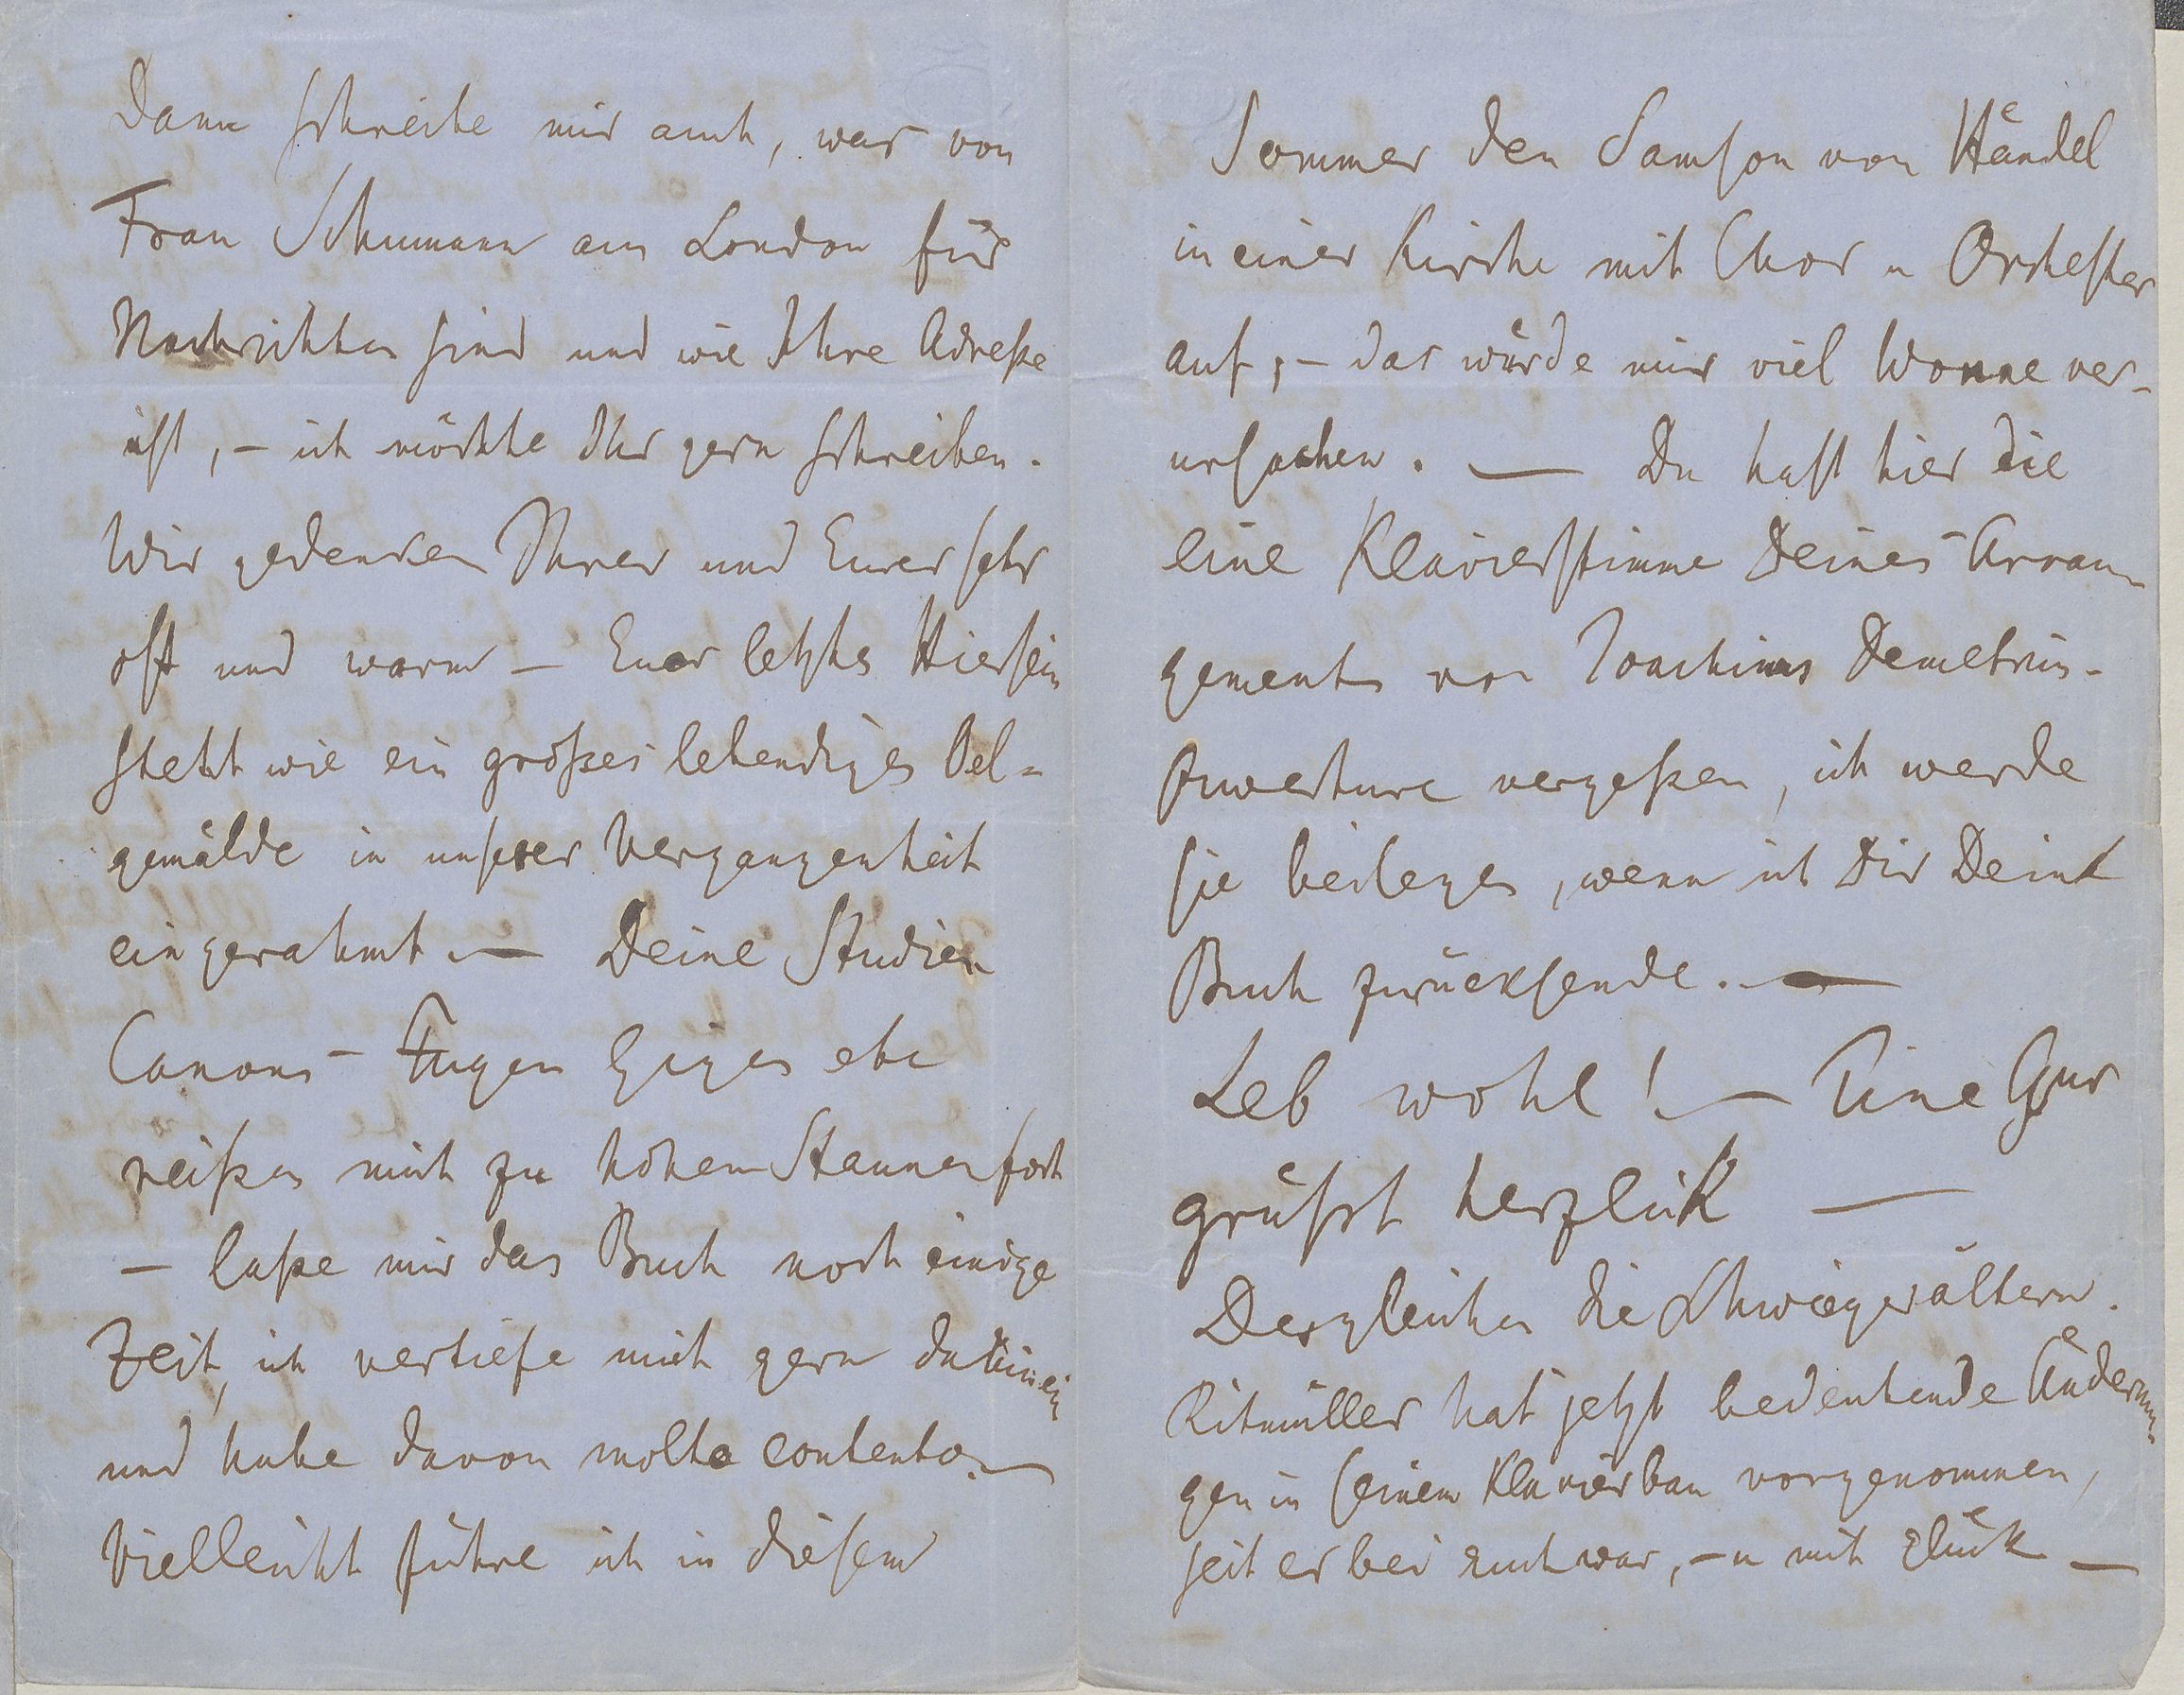 Dann schreibe mir auch, was von
Frau Schumann aus London für
Nachrichten sind und wie Ihre Adreße
ist, – ich möchte Ihr gern schreiben.
Wir gedenken Ihrer und Eurer sehr
oft und warm – Euer letztes Hiersein
steht wie ein großes lebendiges Oel-
gemälde in unserer Vergangenheit
eingerahmt. — Deine Studien
Canons – Fugen Gigen etc
reißen mich zu hohem Staunen fort
– laße mir das Buch noch einige
Zeit, ich vertiefe mich gern dahinein
und habe davon molto contento. —
Vielleicht führe ich in diesem
Sommer den Samson von Händel
in einer Kirche mit Chor u Orchester
auf, – das würde mir viel Wonne ver-
ursachen. — Du hast hier die
eine Klavierstimme Deines Arran-
gements von Joachims Demetrius-
Ouverture vergeßen, ich werde
sie beilegen, wenn ich Dir Dein
Buch zurücksende. —
Leb wohl! — Pine Gur
grüßt herzlich —
Desgleichen die Schwiegerältern.
Ritmüller hat jetzt bedeutende Änderun-
gen in seinem Klavierbau vorgenommen,
seit er bei Euch war, – u mit Glück —